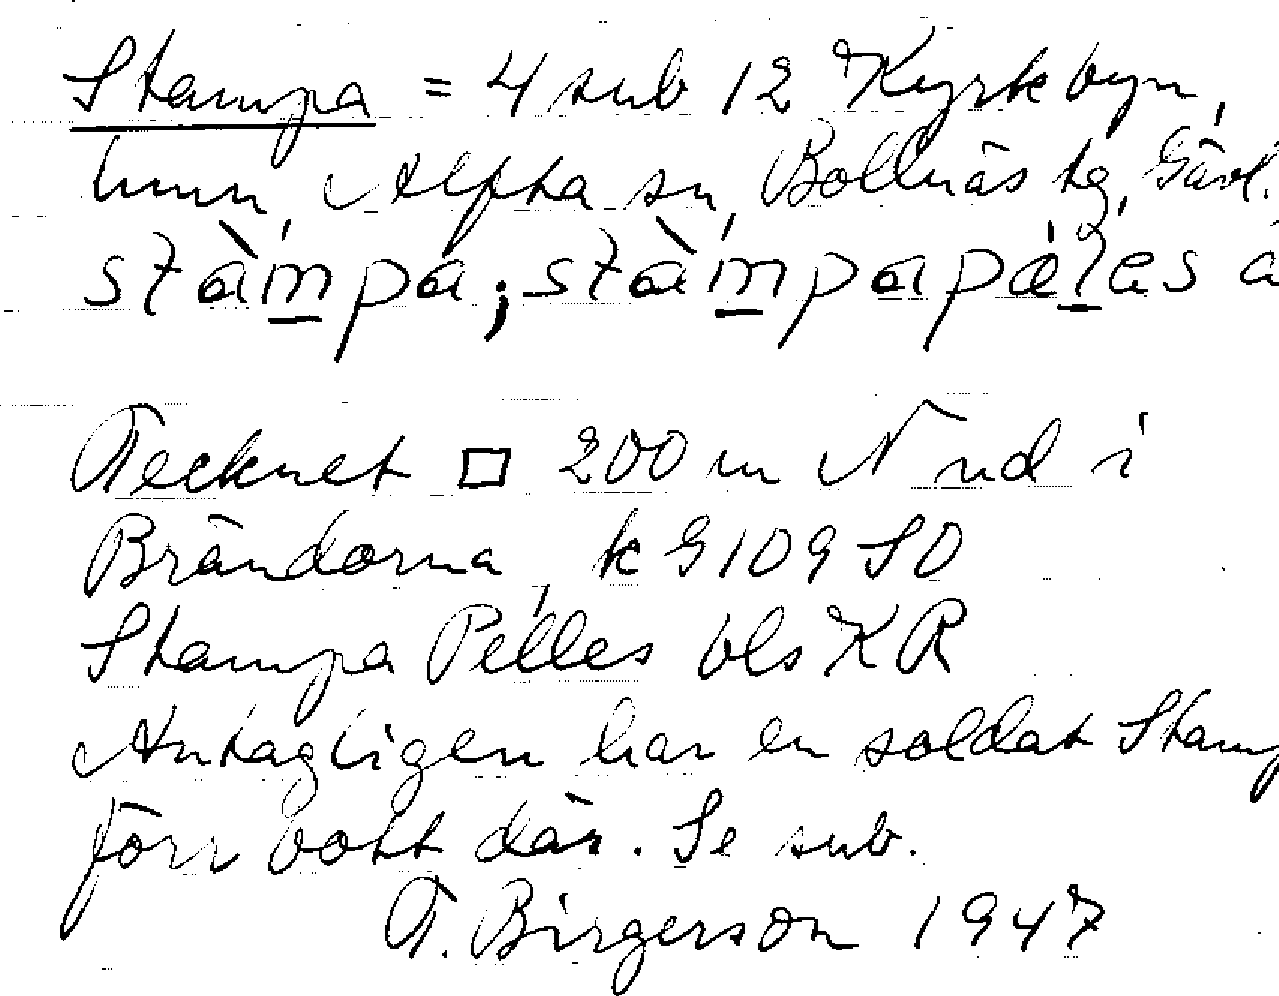 Stampa = 4 sub 12 Kyrkbyn,
hmn, Alfta sn, Bollnäs tg, Gävl.
stàmpa; stàmpapæ̀les
Tecknet □ 200 m N nd i
Brändorna, k G109 SO
Stampa Pelles bls KR
Antagligen har en soldat Stamp
förr bott där. Se sub.
T. Birgerson 1947